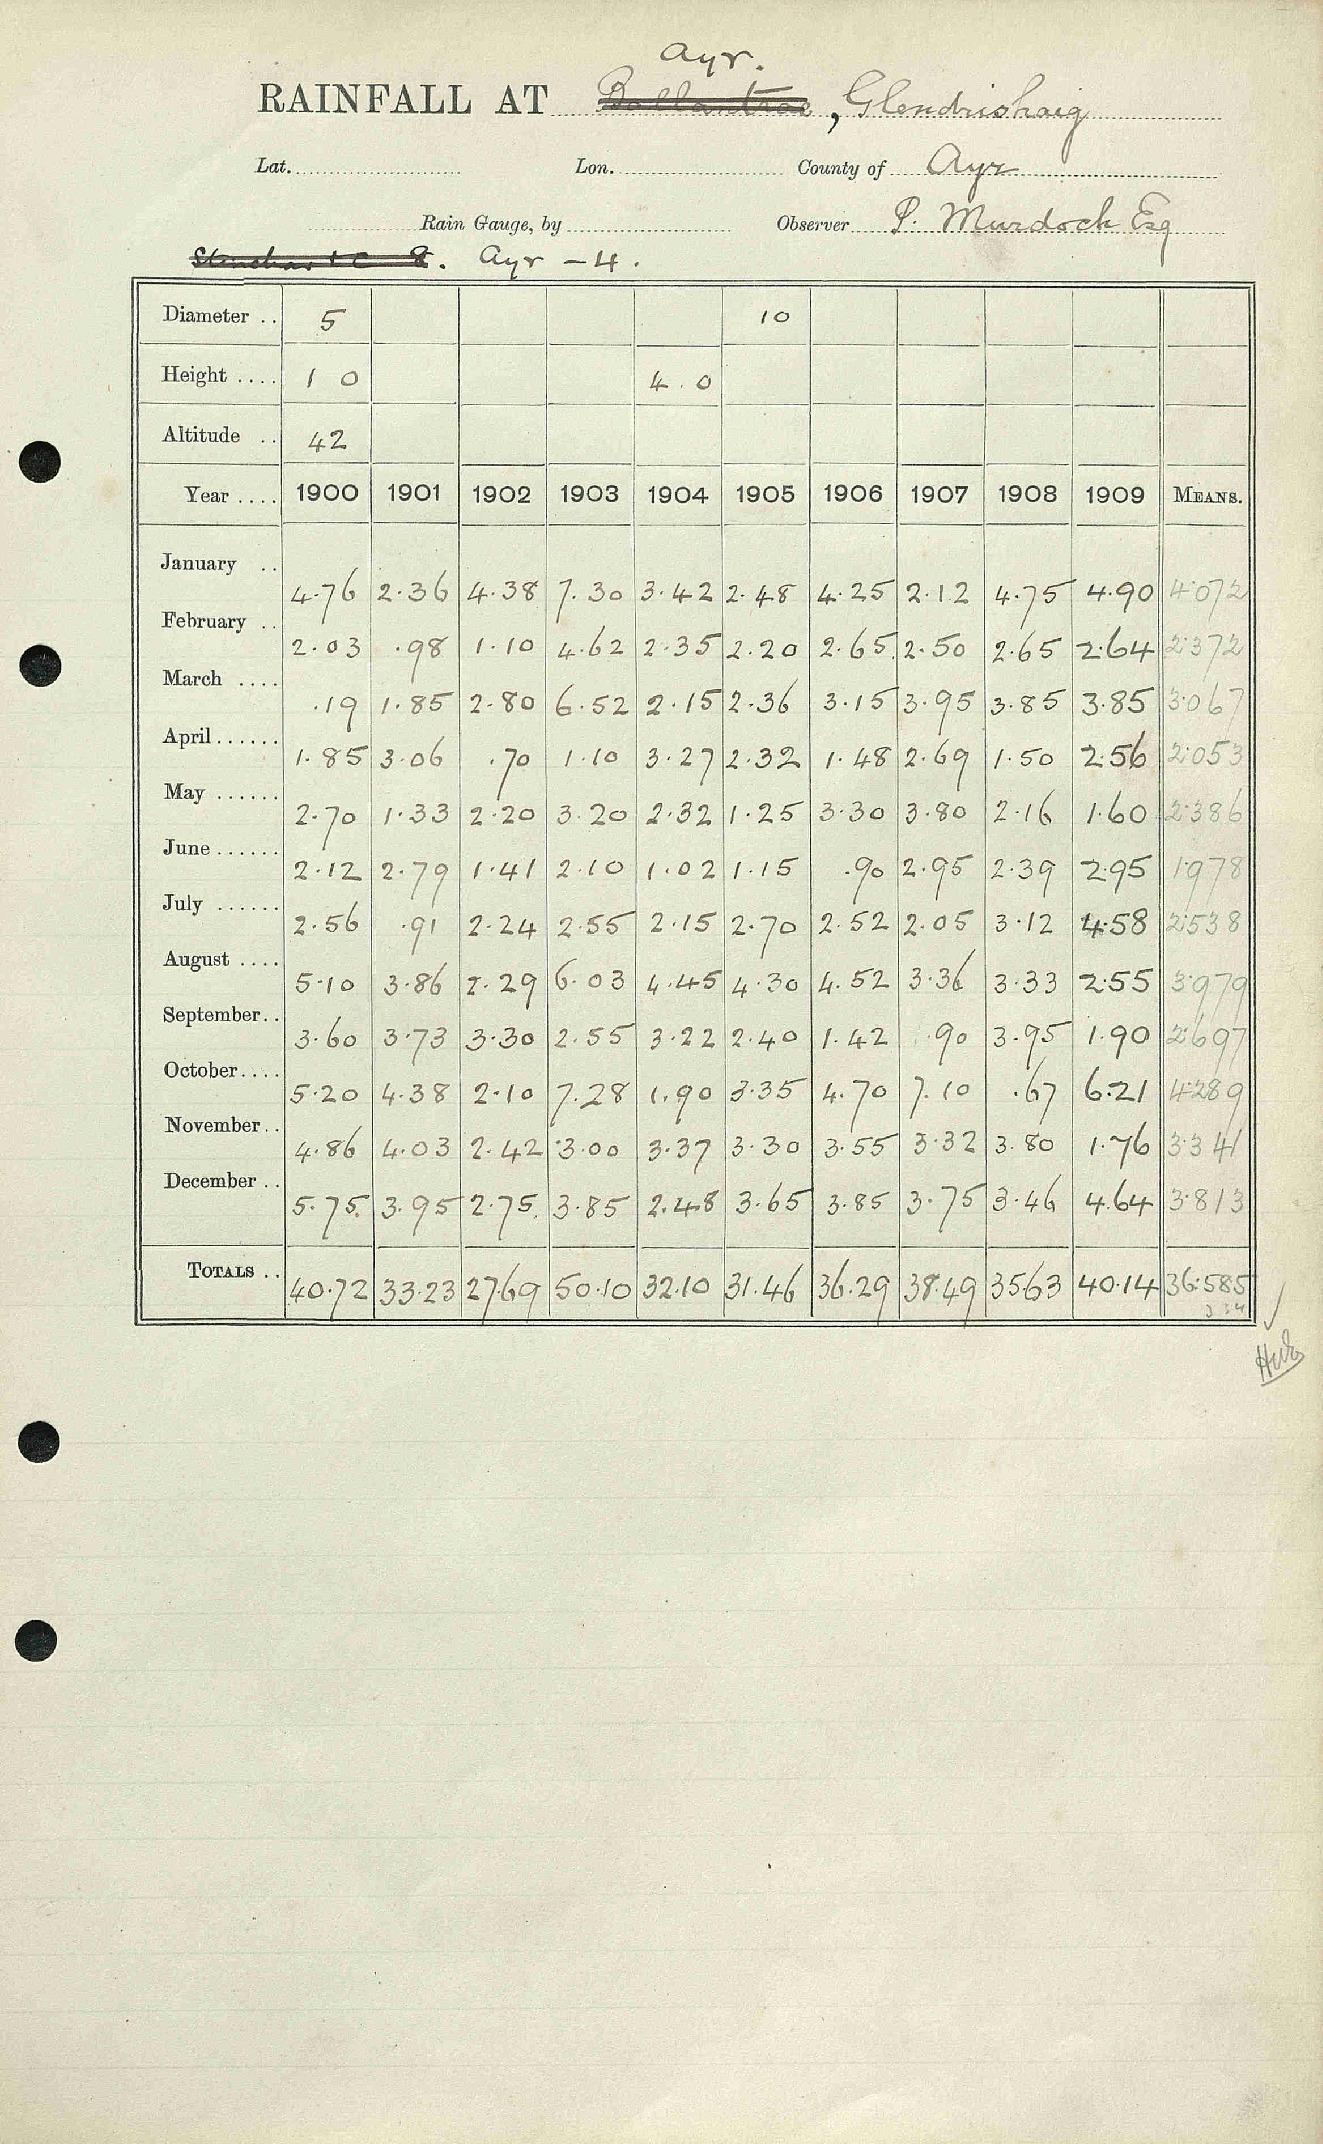 Ayr.
RAINFALL AT Ballantrae, Glendrishaig
Lat. Lon. County of Ayr
Rain Gauge, by Observer P. Murdoch Esq
Ayr - 4.
Diameter .. 5 10
Height .... 1 0 4 . 0
Altitude .. 42
Year .... 1900 1901 1902 1903 1904 1905 1906 1907 1908 1909 MEANS.
January .. 4.76 2.36 4.38 7.30 3.42 2.48 4.25 2.12 4.75 4.90 4.072
February .. 2.03 .98 1.10 4.62 2.35 2.20 2.65 2.50 2.65 2.64 2.372
March .... .19 1.85 2.80 6.52 2.15 2.36 3.15 3.95 3.85 3.85 3.067
April...... 1.85 3.06 .70 1.10 3.27 2.32 1.48 2.69 1.50 2.56 2.053
May ...... 2.70 1.33 2.20 3.20 2.32 1.25 3.30 3.80 2.16 1.60 2.386
June ...... 2.12 2.79 1.41 2.10 1.02 1.15 .90 2.95 2.39 2.95 1.978
July ...... 2.56 .91 2.24 2.55 2.15 2.70 2.52 2.05 3.12 4.58 2.538
August .... 5.10 3.86 2.29 6.03 4.45 4.30 4.52 3.36 3.33 2.55 3.979
September.. 3.60 3.73 3.30 2.55 3.22 2.40 1.42 .90 3.95 1.90 2.697
October.... 5.20 4.38 2.10 7.28 1.90 3.35 4.70 7.10 .67 6.21 4.289
November.. 4.86 4.03 2.42 3.00 3.37 3.30 3.55 3.32 3.80 1.76 3.341
December .. 5.75 3.95 2.75 3.85 2.48 3.65 3.85 3.75 3.46 4.64 3.813
TOTALS .. 40.72 33.23 27.69 50.10 32.10 31.46 36.29 38.49 35.63 40.14 36.585